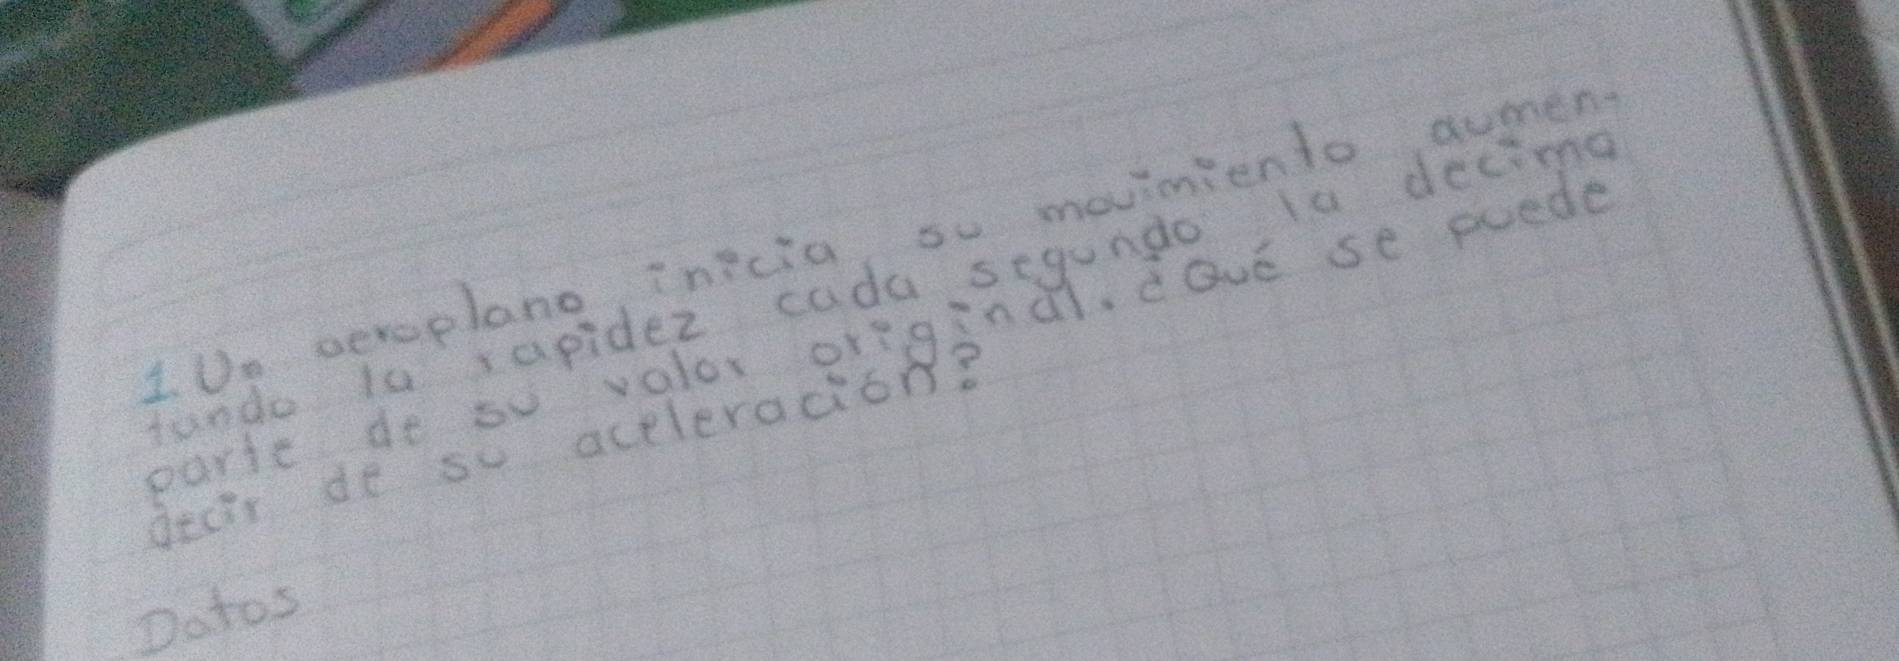 1. Un aeroplano inicia su movimiento aumen-
tando la rapidez cada segundo la decima
parte de su valor original. ¿Qué se puede
decir de su aceleración?
Datos